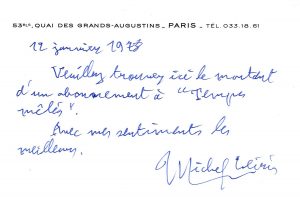 53BIS, QUAI DES GRANDS-AUGUSTINS _ PARIS _ TÉL. 033.18.61
12 janvier 1978
Veuillez trouver ici le montant
d'un abonnement à "Temps
mêlés".
Avec mes sentiments les
meilleurs.
Michel Leiris